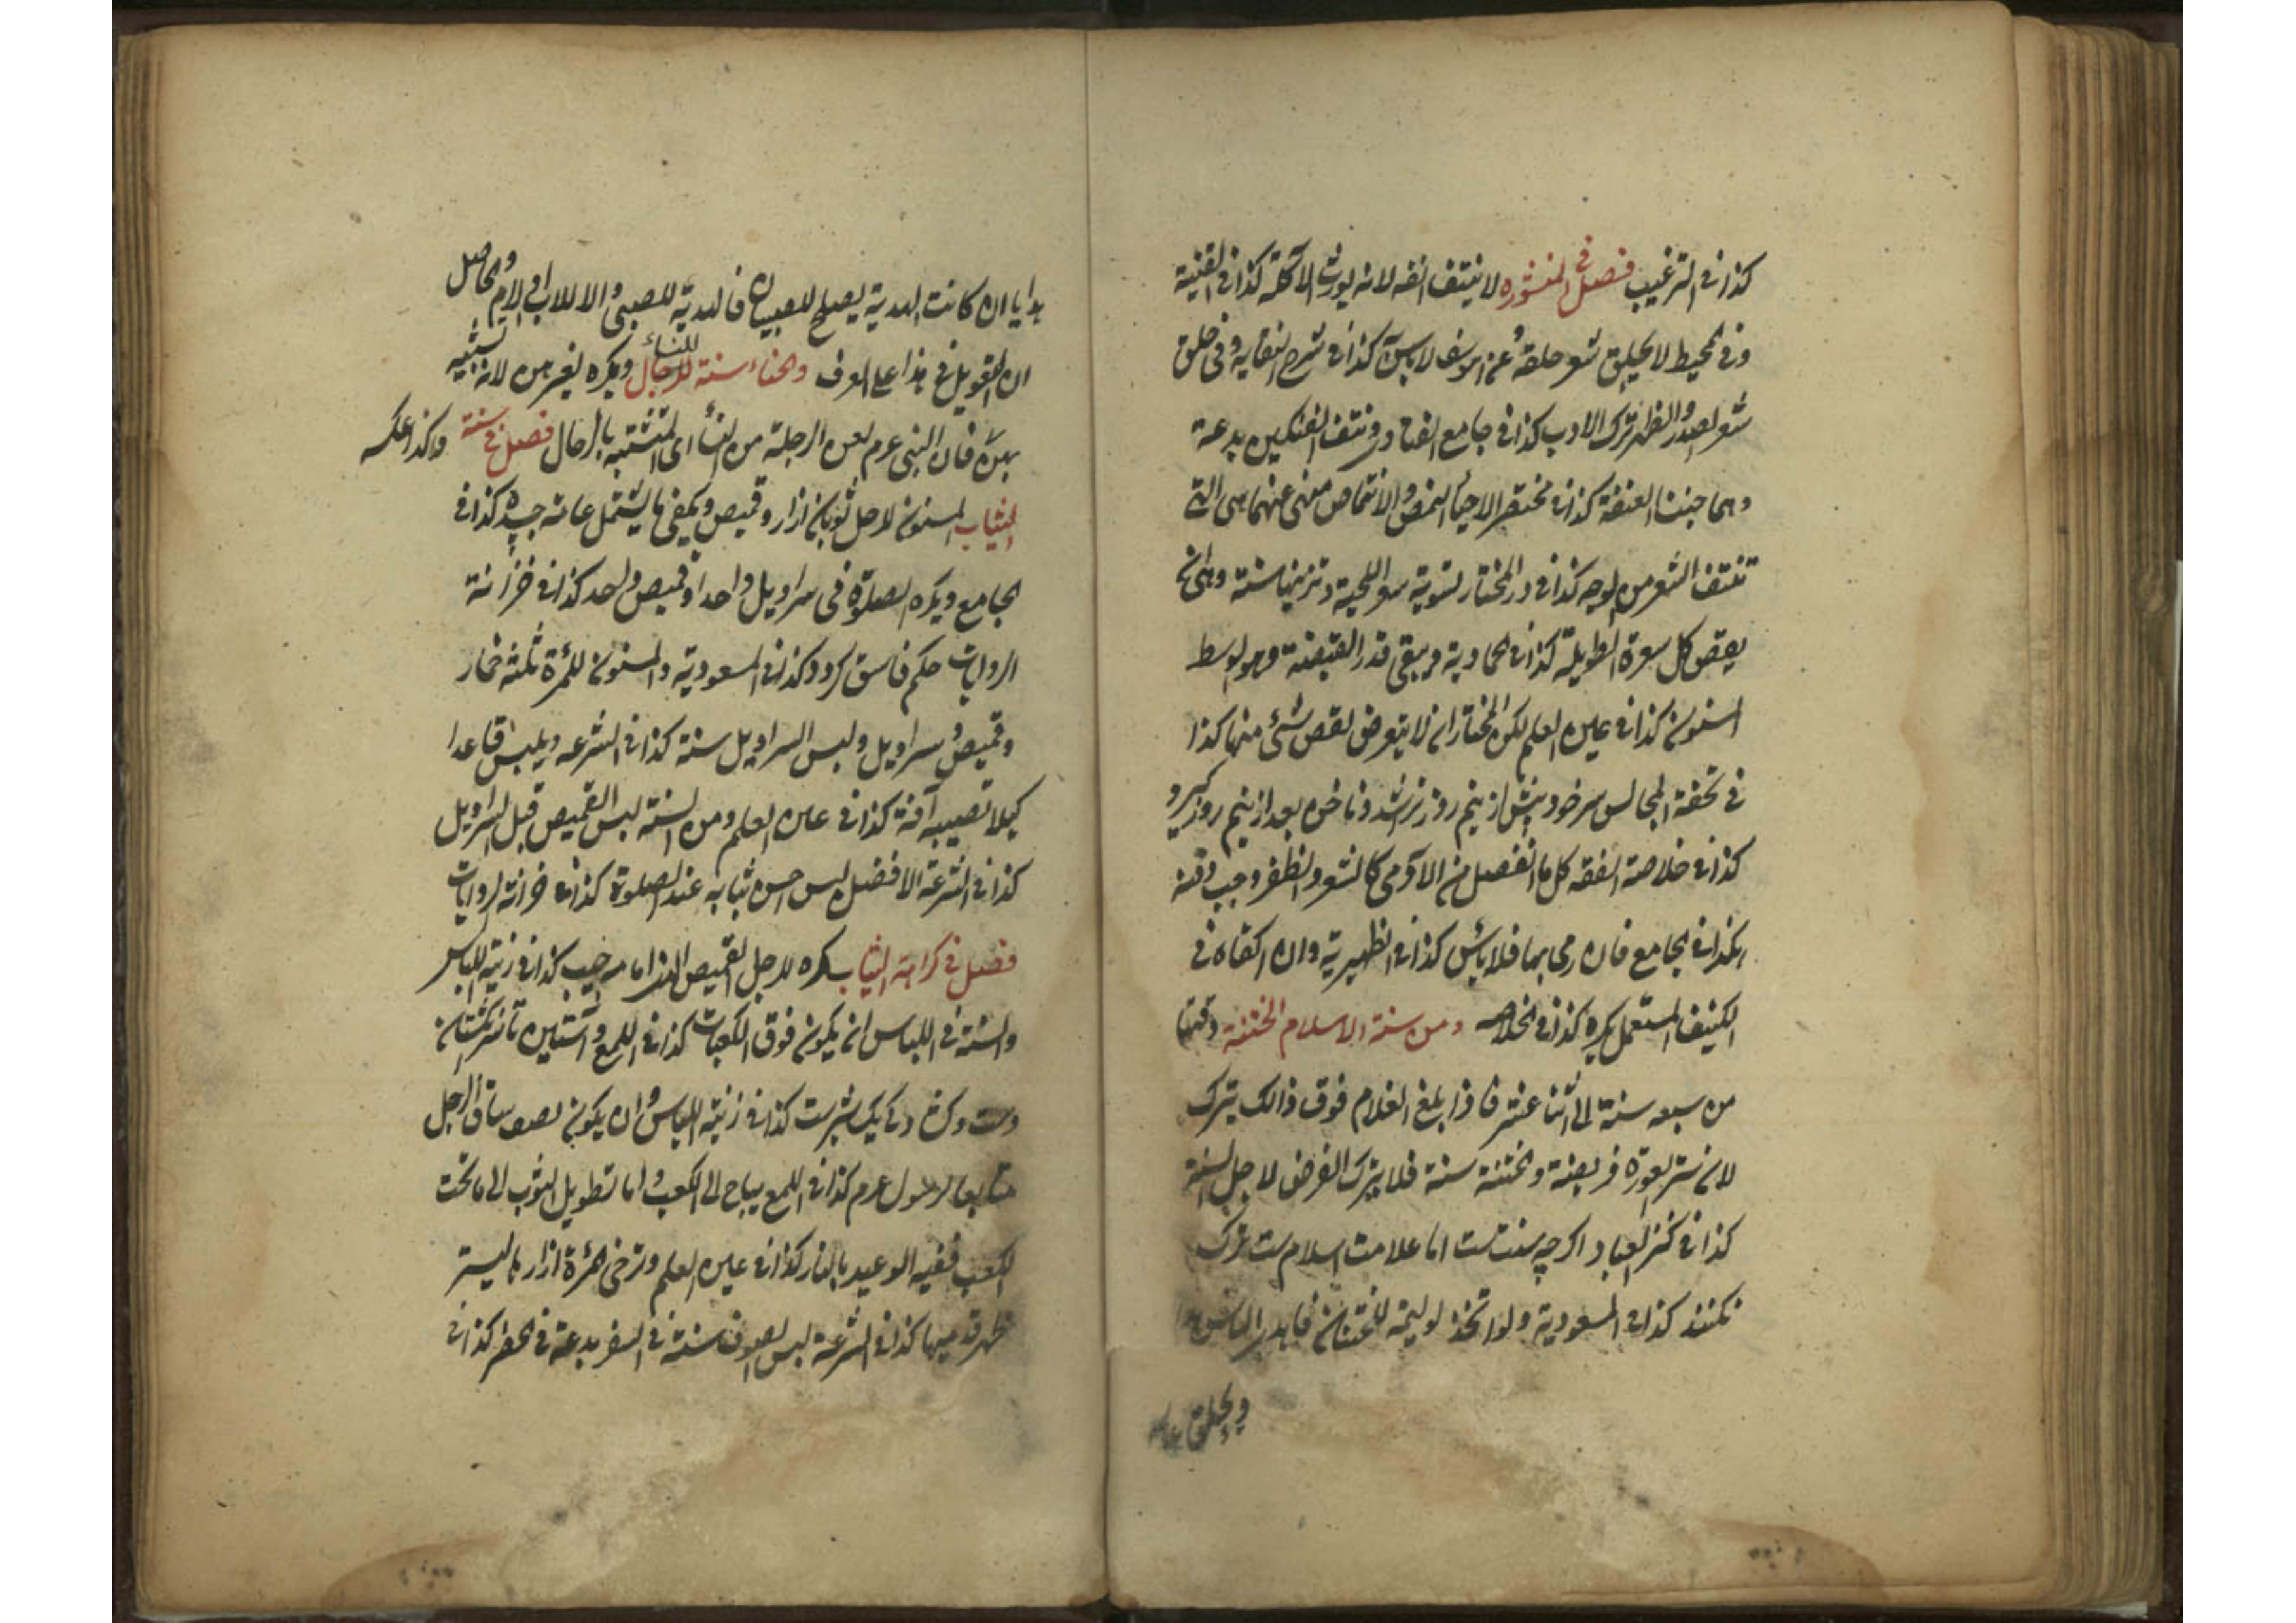 كذا فى الترغيب فصل فى المنثوره لا ينتف انفه لانه يورث الآكلة كذا فى القنية
وفى المحيط لا يحلق شعر حلقه وعن ابى يوسف لا بأس كذا فى شرح النقاية وفى حلق
شعر الصدر والظهر ترك الادب كذا فى جامع ونتف الفنكين بدعة
وهما جنبتا العنفقة كذا فى مختصر الاحياء النمص والانتماص منهى عنهما هى التى
تنتف الشعر من الوجه كذا فى در المختار تسوية شعر اللحية وتزيينها سنة وهى ان
يقص كل شعرة الطويلة كذا فى الحاوية ويبقى قدر القبضة وهو الوسط
المسنون كذا فى عين العلم لكن المختار ان لا يتعرض لقص شئ منها كذا
فى تحفة المجالس سر خود پيش از نيم روز تراشد وناخن بعد از نيم روز گيرد
كذا فى خلاصة الفقه كل ما انفصل من الآدمى كالشعر والظفر وجب دفنه
هكذا فى الجامع فان رمى بها فلا بأس كذا فى الظهيرية وان القاه فى
الكنيف المستعمل يكره كذا فى الخلاصه ومن سنة الاسلام الختنة وقتها
من سبعه سنة الى اثنا عشر فاذا بلغ الغلام فوق ذالك يترك
لان ستر العورة فريضة والختنة سنة فلا يترك الفرض لاجل السنة
كذا فى كنز العباد اگر چه سنت ست اما علامت اسلام ست ترك
نكنند كذا فى المسعودية ولو اتخذ لوليمه للختان فاهدى الناس
ويحلق
هدايا ان كانت الهدية يصلح للصبيان فالهدية للصبى والا للاب او الام والحاصل
ان التعويل فى هذا على العرف والحناء سنة للنساء للرجال ويكره لغيرهن لانه تشبيه
بهن فان النبى عرم لعن الرجلة من النسأ اى المتشبه بالرجال وكذا عكسه فصل فى سنة
الثياب المسنون لاجل ثوبان ازار وقميص ويكفى ما يشتمل عامة جسده كذا فى
الجامع ويكره الصلوة فى سراويل واحد او قميص واحد كذا فى خزانة
الروايات حكم فاسق گردد كذا فى المسعودية والمسنون للمرءة ثلثة خمار
وقميص وسراويل ولبس السراويل سنة كذا فى الشرعه ويلبس قاعدا
كيلا تصيبه آفة كذا فى عين العلم ومن السنة لبس القميص قبل السراويل
كذا فى الشرعة الافضل لبس احسن ثيابه عند الصلوة كذا فى خزانة الروايات
فصل فى كراهة الثياب يكره للرجل القميص الذى امامه جيب كذا فى زينة اللباس
والسنة فى اللباس ان يكون فوق الكعبات كذا فى اللمع وآستين تا سر انگشتان
دست وكف دگ يك شبر ست كذا فى زينة اللباس وان يكون نصف ساق الرجل
متابعا لرسول عرم كذا فى اللمع يباح الى الكعب واما تطويل الثوب الى ما تحت
الكعب ففيه الوعيد بالنار كذا فى عين العلم وترخى المرءة ازار ما ليستر
ظهر قدميها كذا فى الشرعة لبس الصوف سنة فى السفر بدعة فى الحضر كذا فى